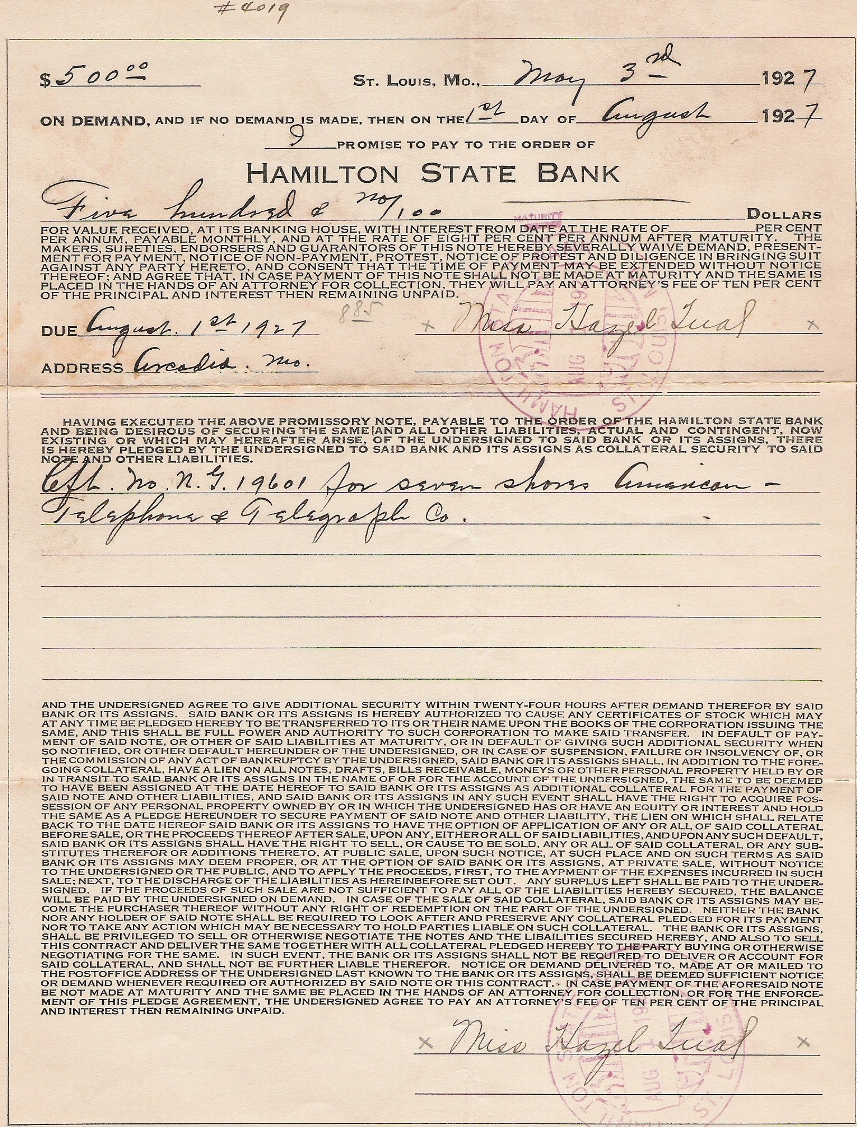 #4019
$500 00 St. Louis, Mo., May 3rd 1927
ON DEMAND, AND IF NO DEMAND IS MADE, THEN ON THE 1st DAY OF August 1927
I PROMISE TO PAY TO THE ORDER OF
HAMILTON STATE BANK
Five hundred & no/100 DOLLARS
MATURITY
FOR VALUE RECEIVED, AT ITS BANKING HOUSE, WITH INTEREST FROM DATE AT THE RATE OF PER CENT
PER ANNUM, PAYABLE MONTHLY, AND AT THE RATE OF EIGHT PER CENT PER ANNUM AFTER MATURITY. THE
MAKERS, SURETIES, ENDORSERS AND GUARANTORS OF THIS NOTE HEREBY SEVERALLY WAIVE DEMAND, PRESENT-
MENT FOR PAYMENT, NOTICE OF NON-PAYMENT, PROTEST, NOTICE OF PROTEST AND DILIGENCE IN BRINGING SUIT
AGAINST ANY PARTY HERETO, AND CONSENT THAT THE TIME OF PAYMENT MAY BE EXTENDED WITHOUT NOTICE
THEREOF; AND AGREE THAT, IN CASE PAYMENT OF THIS NOTE SHALL NOT BE MADE AT MATURITY AND THE SAME IS
PLACED IN THE HANDS OF AN ATTORNEY FOR COLLECTION, THEY WILL PAY AN ATTORNEY'S FEE OF TEN PER CENT
OF THE PRINCIPAL AND INTEREST THEN REMAINING UNPAID.
DUE August. 1st 1927 885 x Miss Hazel Tual x
ADDRESS Arcadia. Mo.
HAVING EXECUTED THE ABOVE PROMISSORY NOTE, PAYABLE TO THE ORDER OF THE HAMILTON STATE BANK
AND BEING DESIROUS OF SECURING THE SAME AND ALL OTHER LIABILITIES, ACTUAL AND CONTINGENT, NOW
EXISTING OR WHICH MAY HEREAFTER ARISE, OF THE UNDERSIGNED TO SAID BANK OR ITS ASSIGNS, THERE
IS HEREBY PLEDGED BY THE UNDERSIGNED TO SAID BANK AND ITS ASSIGNS AS COLLATERAL SECURITY TO SAID
NOTE AND OTHER LIABILITIES.
Cft. No. N.G. 19601 for seven shares American -
Telephone & Telegraph Co.
AND THE UNDERSIGNED AGREE TO GIVE ADDITIONAL SECURITY WITHIN TWENTY-FOUR HOURS AFTER DEMAND THEREFOR BY SAID
BANK OR ITS ASSIGNS. SAID BANK OR ITS ASSIGNS IS HEREBY AUTHORIZED TO CAUSE ANY CERTIFICATES OF STOCK WHICH MAY
AT ANY TIME BE PLEDGED HEREBY TO BE TRANSFERRED TO ITS OR THEIR NAME UPON THE BOOKS OF THE CORPORATION ISSUING THE
SAME, AND THIS SHALL BE FULL POWER AND AUTHORITY TO SUCH CORPORATION TO MAKE SAID TRANSFER. IN DEFAULT OF PAY-
MENT OF SAID NOTE, OR OTHER OF SAID LIABILITIES AT MATURITY, OR IN DEFAULT OF GIVING SUCH ADDITIONAL SECURITY WHEN
SO NOTIFIED, OR OTHER DEFAULT HEREUNDER OF THE UNDERSIGNED, OR IN CASE OF SUSPENSION, FAILURE OR INSOLVENCY OF, OR
THE COMMISSION OF ANY ACT OF BANKRUPTCY BY THE UNDERSIGNED, SAID BANK OR ITS ASSIGNS SHALL, IN ADDITION TO THE FORE-
GOING COLLATERAL, HAVE A LIEN ON ALL NOTES, DRAFTS, BILLS RECEIVABLE, MONEYS OR OTHER PERSONAL PROPERTY HELD BY OR
IN TRANSIT TO SAID BANK OR ITS ASSIGNS IN THE NAME OF OR FOR THE ACCOUNT OF THE UNDERSIGNED, THE SAME TO BE DEEMED
TO HAVE BEEN ASSIGNED AT THE DATE HEREOF TO SAID BANK OR ITS ASSIGNS AS ADDITIONAL COLLATERAL FOR THE PAYMENT OF
SAID NOTE AND OTHER LIABILITIES, AND SAID BANK OR ITS ASSIGNS IN ANY SUCH EVENT SHALL HAVE THE RIGHT TO ACQUIRE POS-
SESSION OF ANY PERSONAL PROPERTY OWNED BY OR IN WHICH THE UNDERSIGNED HAS OR HAVE AN EQUITY OR INTEREST AND HOLD
THE SAME AS A PLEDGE HEREUNDER TO SECURE PAYMENT OF SAID NOTE AND OTHER LIABILITY, THE LIEN ON WHICH SHALL RELATE
BACK TO THE DATE HEREOF SAID BANK OR ITS ASSIGNS TO HAVE THE OPTION OF APPLICATION OF ANY OR ALL OF SAID COLLATERAL
BEFORE SALE, OR THE PROCEEDS THEREOF AFTER SALE, UPON ANY, EITHER OR ALL OF SAID LIABILITIES, AND UPON ANY SUCH DEFAULT,
SAID BANK OR ITS ASSIGNS SHALL HAVE THE RIGHT TO SELL, OR CAUSE TO BE SOLD, ANY OR ALL OF SAID COLLATERAL OR ANY SUB-
STITUTES THEREFOR OR ADDITIONS THERETO, AT PUBLIC SALE, UPON SUCH NOTICE, AT SUCH PLACE AND ON SUCH TERMS AS SAID
BANK OR ITS ASSIGNS MAY DEEM PROPER, OR AT THE OPTION OF SAID BANK OR ITS ASSIGNS, AT PRIVATE SALE, WITHOUT NOTICE
TO THE UNDERSIGNED OR THE PUBLIC, AND TO APPLY THE PROCEEDS, FIRST, TO THE AYPMENT OF THE EXPENSES INCURRED IN SUCH
SALE; NEXT, TO THE DISCHARGE OF THE LIABILITIES AS HEREINBEFORE SET OUT. ANY SURPLUS LEFT SHALL BE PAID TO THE UNDER-
SIGNED. IF THE PROCEEDS OF SUCH SALE ARE NOT SUFFICIENT TO PAY ALL OF THE LIABILITIES HEREBY SECURED, THE BALANCE
WILL BE PAID BY THE UNDERSIGNED ON DEMAND. IN CASE OF THE SALE OF SAID COLLATERAL, SAID BANK OR ITS ASSIGNS MAY BE-
COME THE PURCHASER THEREOF WITHOUT ANY RIGHT OF REDEMPTION ON THE PART OF THE UNDERSIGNED. NEITHER THE BANK
NOR ANY HOLDER OF SAID NOTE SHALL BE REQUIRED TO LOOK AFTER AND PRESERVE ANY COLLATERAL PLEDGED FOR ITS PAYMENT
NOR TO TAKE ANY ACTION WHICH MAY BE NECESSARY TO HOLD PARTIES LIABLE ON SUCH COLLATERAL. THE BANK OR ITS ASSIGNS,
SHALL BE PRIVILEGED TO SELL OR OTHERWISE NEGOTIATE THE NOTES AND THE LIBAILITIES SECURED HEREBY, AND ALSO TO SELL
THIS CONTRACT AND DELIVER THE SAME TOGETHER WITH ALL COLLATERAL PLEDGED HEREBY TO THE PARTY BUYING OR OTHERWISE
NEGOTIATING FOR THE SAME. IN SUCH EVENT, THE BANK OR ITS ASSIGNS SHALL NOT BE REQUIRED TO DELIVER OR ACCOUNT FOR
SAID COLLATERAL, AND SHALL NOT BE FURTHER LIABLE THEREFOR. NOTICE OR DEMAND DELIVERED TO, MADE AT OR MAILED TO
THE POSTOFFICE ADDRESS OF THE UNDERSIGNED LAST KNOWN TO THE BANK OR ITS ASSIGNS, SHALL BE DEEMED SUFFICIENT NOTICE
OR DEMAND WHENEVER REQUIRED OR AUTHORIZED BY SAID NOTE OR THIS CONTRACT. IN CASE PAYMENT OF THE AFORESAID NOTE
BE NOT MADE AT MATURITY AND THE SAME BE PLACED IN THE HANDS OF AN ATTORNEY FOR COLLECTION, OR FOR THE ENFORCE-
MENT OF THIS PLEDGE AGREEMENT, THE UNDERSIGNED AGREE TO PAY AN ATTORNEY'S FEE OF TEN PER CENT OF THE PRINCIPAL
AND INTEREST THEN REMAINING UNPAID.
x Miss Hazel Tual x